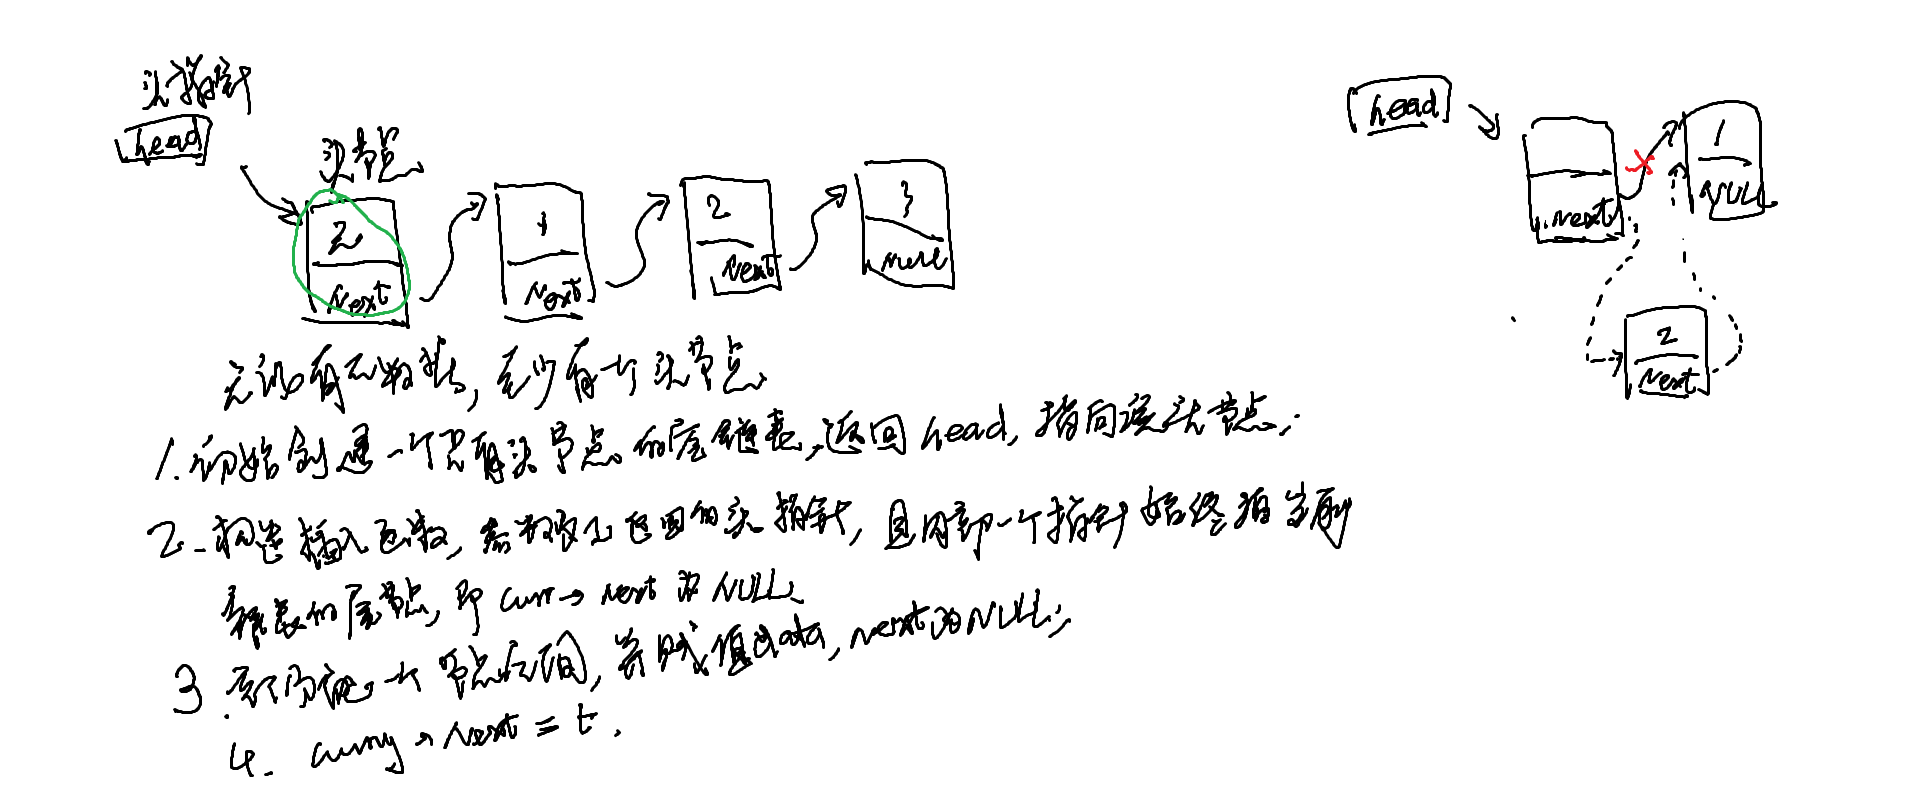 头指针
head
头节点
无
Next
1
Next
2
Next
3
NULL
head
Next
1
NULL
2
Next
无论有无数据，至少有一个头节点
1.初始创建一个只有头节点的尾链表，返回head，指向该头节点；
2.构造插入函数，参数收上返回的头指针，且内部一个指针始终指当前
链表的尾节点，即curr→next为NULL、
3.新分配一个节点空间，并赋值data，next为NULL；
4. curr→Next = t.